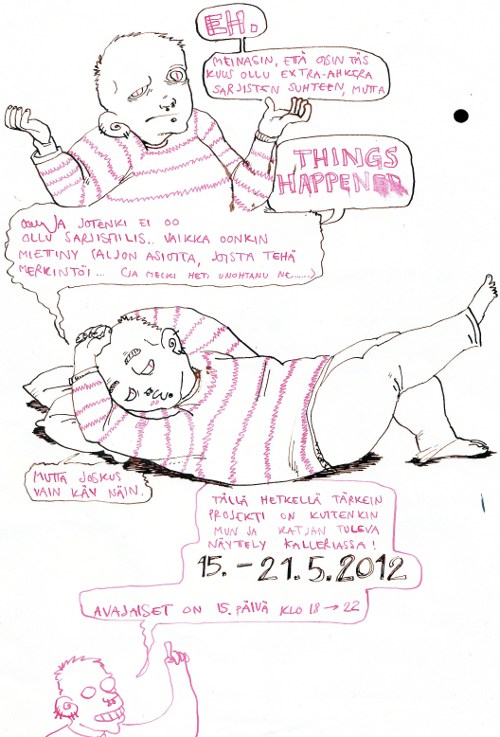 EH.
MEINASIN, ETTÄ OISIN TÄS
KUUS OLLU EXTRA-AHKERA
SARJISTEN SUHTEEN, MUTTA
THINGS
HAPPENED
JA JOTENKI EI OO
OLLU SARJISFIILIS.. VAIKKA OONKIN
MIETTINY PALJON ASIOITA, JOISTA TEHÄ
MERKINTÖI... (JA MELKI HETI UNOHTANU NE......)
MUTTA JOSKUS
VAIN KÄY NÄIN.
TÄLLÄ HETKELLÄ TÄRKEIN
PROJEKTI ON KUITENKIN
MUN JA KATJAN TULEVA
NÄYTTELY KALLERIASSA!
15. - 21.5.2012
AVAJAISET ON 15. PÄIVÄ KLO 18 → 22